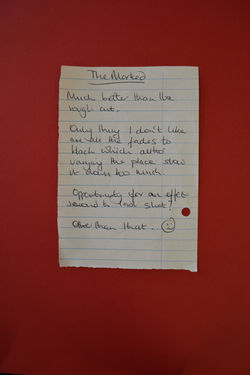 The Marked
Much better than the
rough cut.
Only thing I don't like
are all the fades to
black which
varying the place slow
it down too much.
Opportunity for an effect
shot?
Other than that...